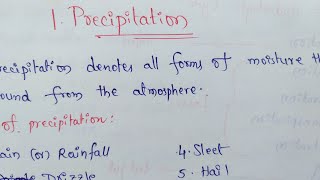 1. Precipitation
recipitation denotes all forms of moisture th
ound from the atmosphere.
of precipitation:
ain (or) Rainfall
4. Sleet
Drizzle
5. Hail